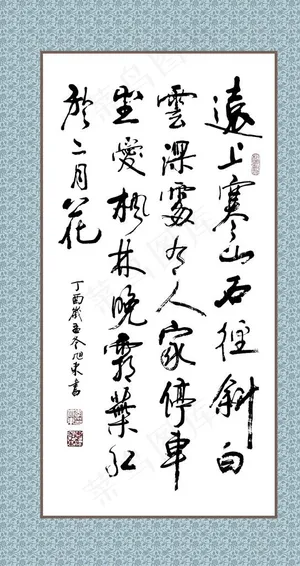 遠上寒山石徑斜白
雲深處有人家停車
坐愛楓林晚霜葉红
於二月花
丁酉歲孟冬旭東書